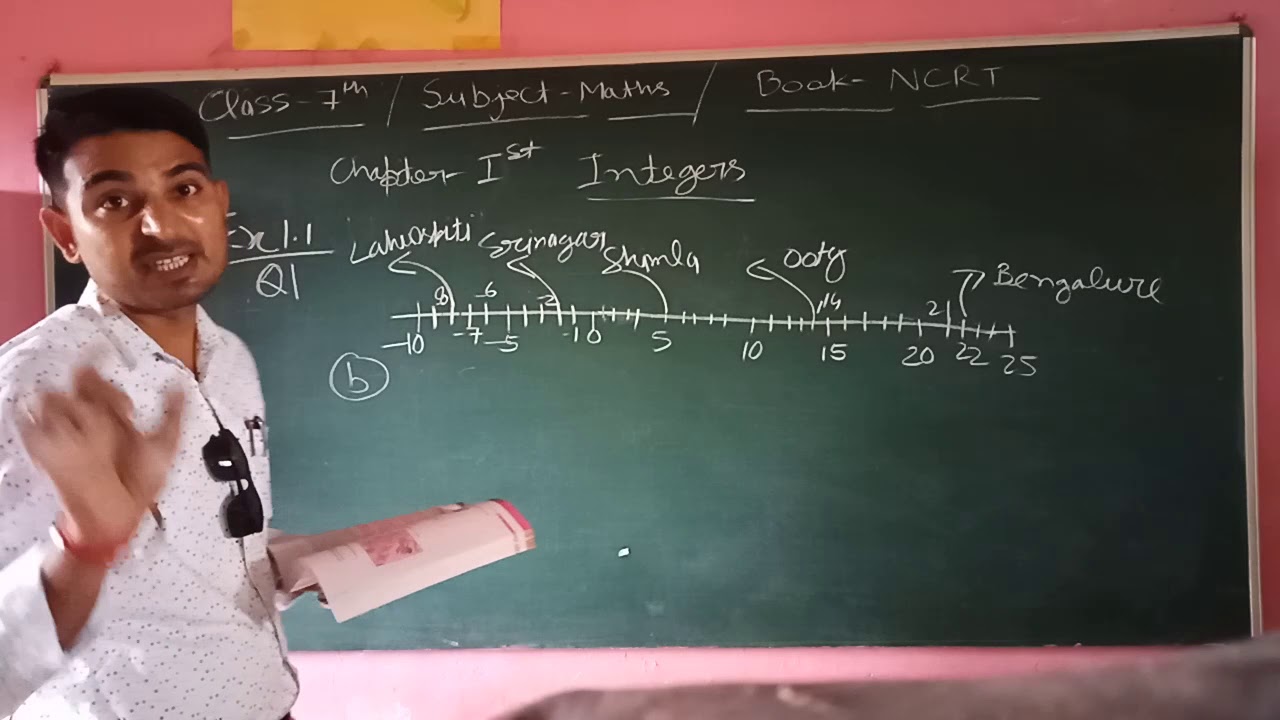 Class-7th / Subject-Maths / Book- NCRT
Chapter-Ist Integers
Ex1.1
Q1
Lahulspiti Srinagar Shimla Ooty Bengalure
8 -6 -2 14 21
-10 -7 -5 -1 0 5 10 15 20 22 25
b